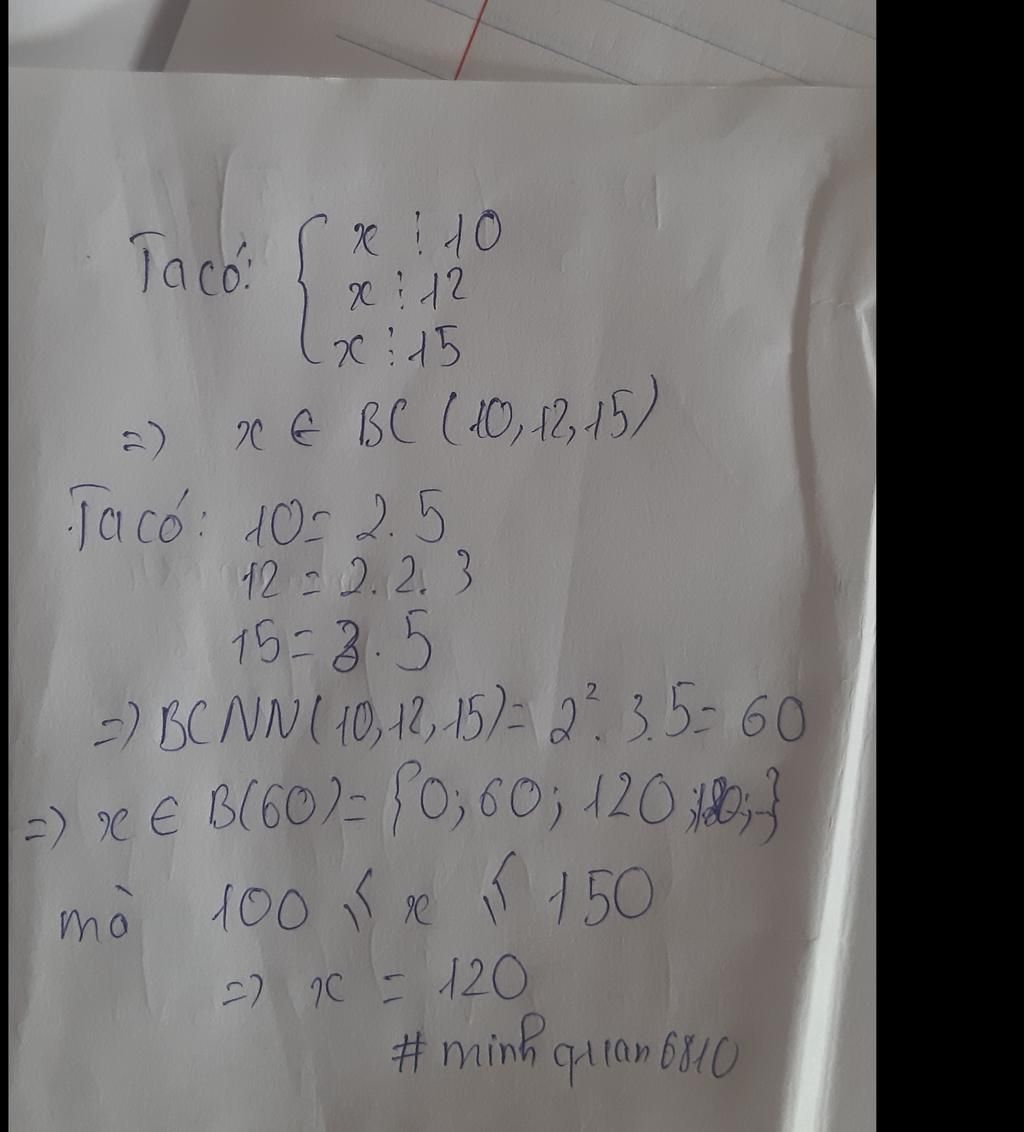 Ta có: { x ⋮ 10
x ⋮ 12
x ⋮ 15
=> x ∈ BC (10, 12, 15)
Ta có: 10 = 2. 5
12 = 2. 2. 3
15 = 3. 5
=> BCNN (10, 12, 15) = 2². 3. 5 = 60
=> x ∈ B(60) = {0; 60; 120; 180; ...}
mà 100 ≤ x ≤ 150
=> x = 120
# minh quan 6810